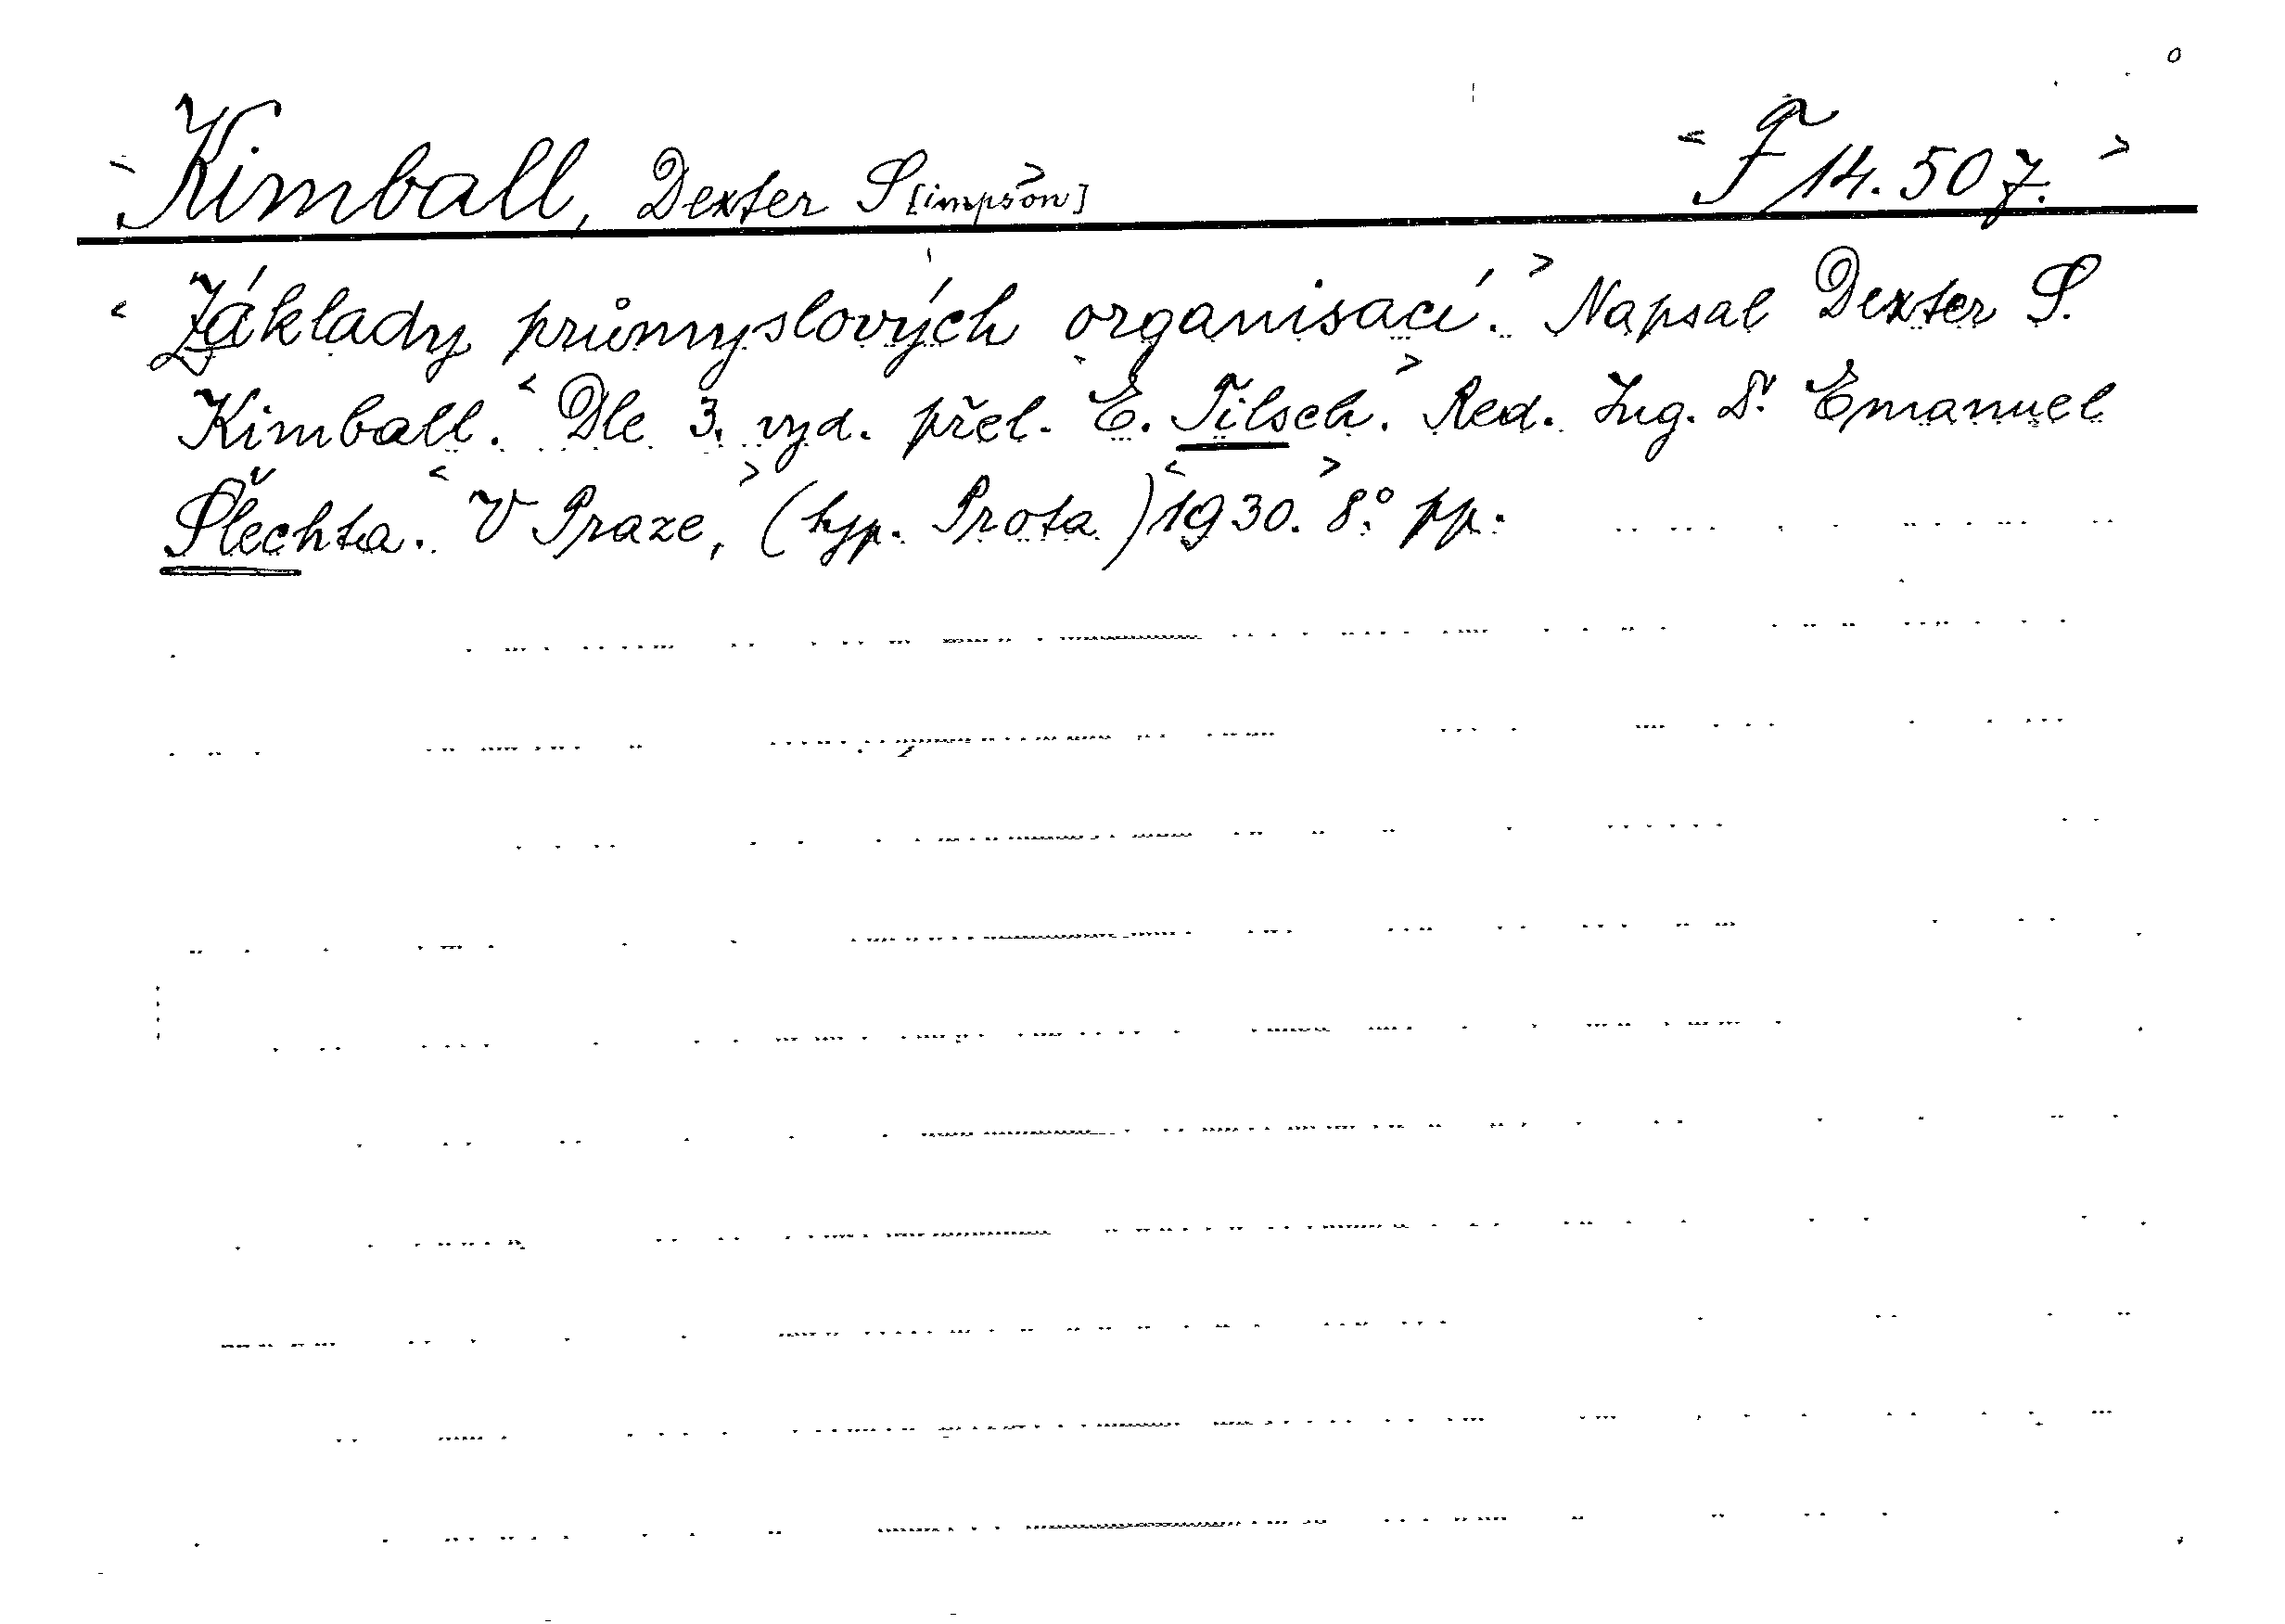 <Kimball, Dexter S[impson]> <F 14.507.>
<Základy průmyslových organisací.> Napsal Dexter S.
Kimball. <Dle 3. vyd. přel. E. Tilsch.> Red. Ing. Dr. Emanuel
Šlechta. <V Praze,> (typ. Prota) <1930.> 8.° pp.